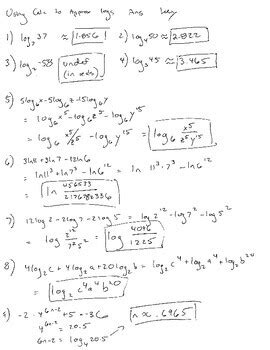 Using Calc to Approx logs Ans Key
1) log₇ 37 ≈ 1.856 2) log₄ 50 ≈ 2.822
3) log₆ -533 undef (in reals) 4) log₃ 45 ≈ 3.465
5) 5log₆x - 5log₆z - 15log₆y
= log₆x⁵ - log₆z⁵ - log₆y¹⁵
= log₆ x⁵/z⁵ - log₆y¹⁵ = log₆ x⁵/z⁵y¹⁵
6) 3ln11 + 3ln7 - 12ln6
= ln11³ + ln7³ - ln6¹² = ln 11³·7³ - ln6¹²
= ln 456533/2176782336
7) 12log2 - 2log7 - 2log5 = log2¹² - log7² - log5²
= log 2¹²/7²5² = log 4096/1225
8) 4log₂c + 4log₂a + 20log₂b = log₂c⁴ + log₂a⁴ + log₂b²⁰
= log₂ c⁴a⁴b²⁰
-2·4⁶ⁿ⁻² + 5 = -36 n ≈ .6965
4⁶ⁿ⁻² = 20.5
6n-2 = log₄ 20.5